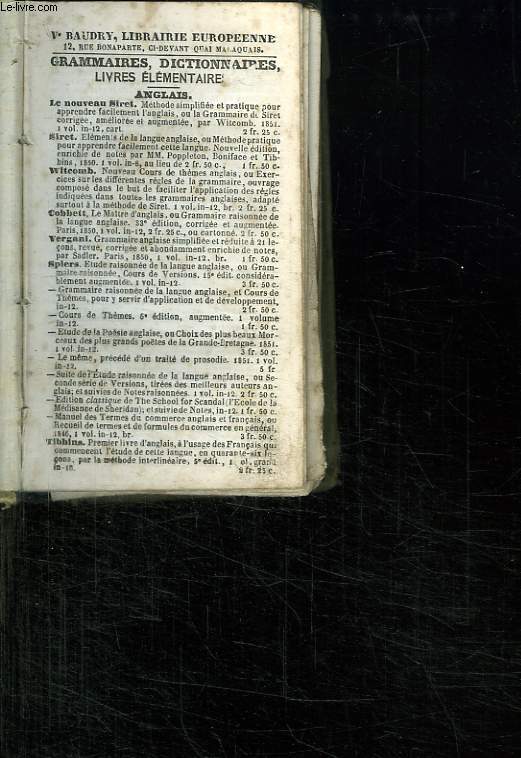 Le-livre.com
Ve BAUDRY, LIBRAIRIE EUROPEENNE
12, RUE BONAPARTE, CI-DEVANT QUAI MALAQUAIS.
GRAMMAIRES, DICTIONNAIRES,
LIVRES ÉLÉMENTAIRES
ANGLAIS.
Le nouveau Siret. Méthode simplifiée et pratique pour
apprendre facilement l'anglais, ou la Grammaire de Siret
corrigée, améliorée et augmentée, par Witcomb. 1851.
1 vol. in-12, cart. 2 fr. 25 c.
Siret. Eléments de la langue anglaise, ou Méthode pratique
pour apprendre facilement cette langue. Nouvelle édition,
enrichie de notes par MM. Poppleton, Boniface et Tib-
bins, 1850. 1 vol. in-8, au lieu de 2 fr. 50 c., 1 fr. 50 c.
Witcomb. Nouveau Cours de thèmes anglais, ou Exer-
cices sur les différentes règles de la grammaire, ouvrage
composé dans le but de faciliter l'application des règles
indiquées dans toutes les grammaires anglaises, adapté
surtout à la méthode de Siret. 1 vol. in-12, br. 2 fr. 25 c.
Cobbett. Le Maître d'anglais, ou Grammaire raisonnée de
la langue anglaise. 33e édition, corrigée et augmentée.
Paris, 1850, 1 vol. in-12, 2 fr. 25 c., ou cartonné. 2 fr. 50 c.
Vergani. Grammaire anglaise simplifiée et réduite à 21 le-
çons, revue, corrigée et abondamment enrichie de notes,
par Sadler. Paris, 1850, 1 vol. in-12, br. 1 fr. 50 c.
Spiers. Etude raisonnée de la langue anglaise, ou Gram-
maire raisonnée, Cours de Versions. 15e édit. considéra-
blement augmentée. 1 vol. in-12. 3 fr. 50 c.
— Grammaire raisonnée de la langue anglaise, et Cours de
Thèmes, pour y servir d'application et de développement,
in-12. 2 fr. 50 c.
— Cours de Thèmes. 5e édition, augmentée. 1 volume
in-12. 1 fr. 50 c.
— Etude de la Poésie anglaise, ou Choix des plus beaux Mor-
ceaux des plus grands poëtes de la Grande-Bretagne. 1851.
1 vol. in-12. 3 fr. 50 c.
— Le même, précédé d'un traité de prosodie. 1851. 1 vol.
in-12. 5 fr
— Suite de l'Étude raisonnée de la langue anglaise, ou Se-
conde série de Versions, tirées des meilleurs auteurs an-
glais; et suivies de Notes raisonnées. 1 vol. in-12. 2 fr. 50 c.
— Edition classique de The School for Scandal (l'Ecole de la
Médisance de Sheridan); et suivie de Notes, in-12. 1 fr. 50 c.
— Manuel des Termes du commerce anglais et français, ou
Recueil de termes et de formules du commerce en général,
1846, 1 vol. in-12, br. 3 fr. 50 c.
Tibbins. Premier livre d'anglais, à l'usage des Français qui
commencent l'étude de cette langue, en quarante-six le-
çons, par la méthode interlinéaire, 5e édit., 1 vol. grand
in-18. 2 fr. 25 c.